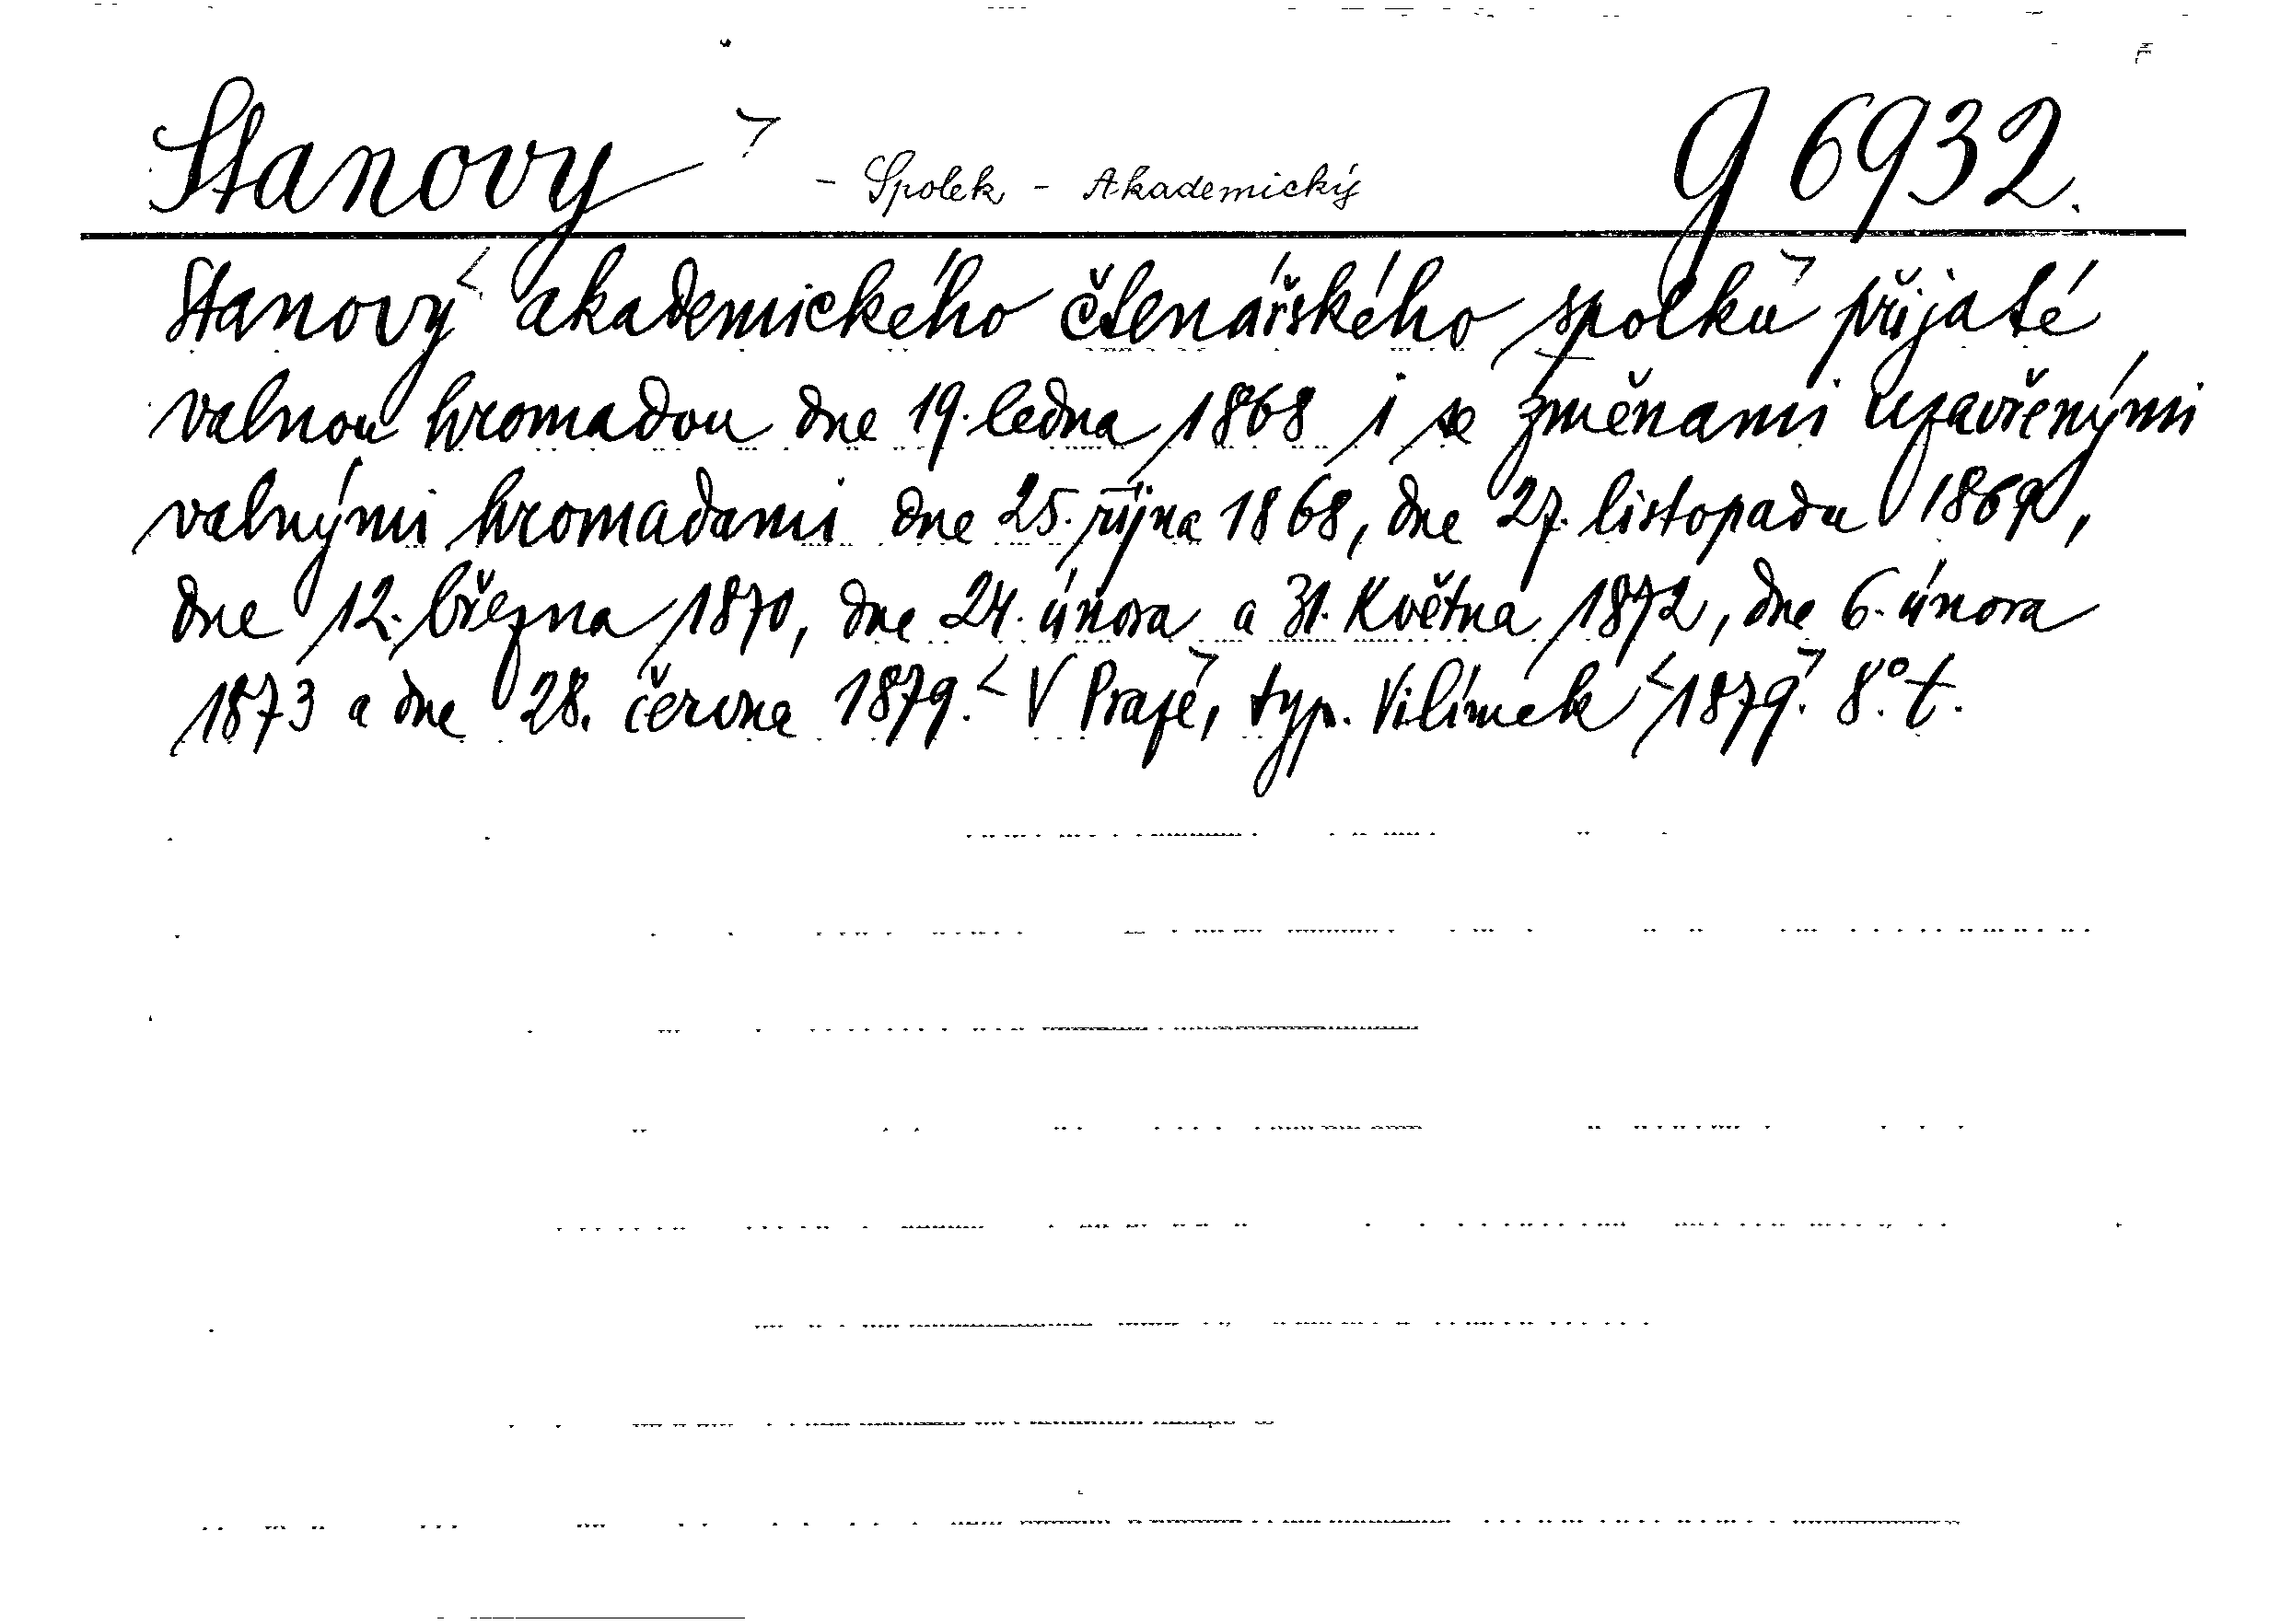 Stanovy - Spolek - Akademický g 6932.
Stanovy akademického čtenářského spolku přijaté
valnou hromadou dne 19. ledna 1868 i se změnami uzavřenými
valnými hromadami dne 25. října 1868, dne 27. listopadu 1869,
dne 12. března 1870, dne 24. února a 31. Května 1872, dne 6. února
1873 a dne 28. června 1879. V Praze, typ. Vilímek 1879. 8.° t.